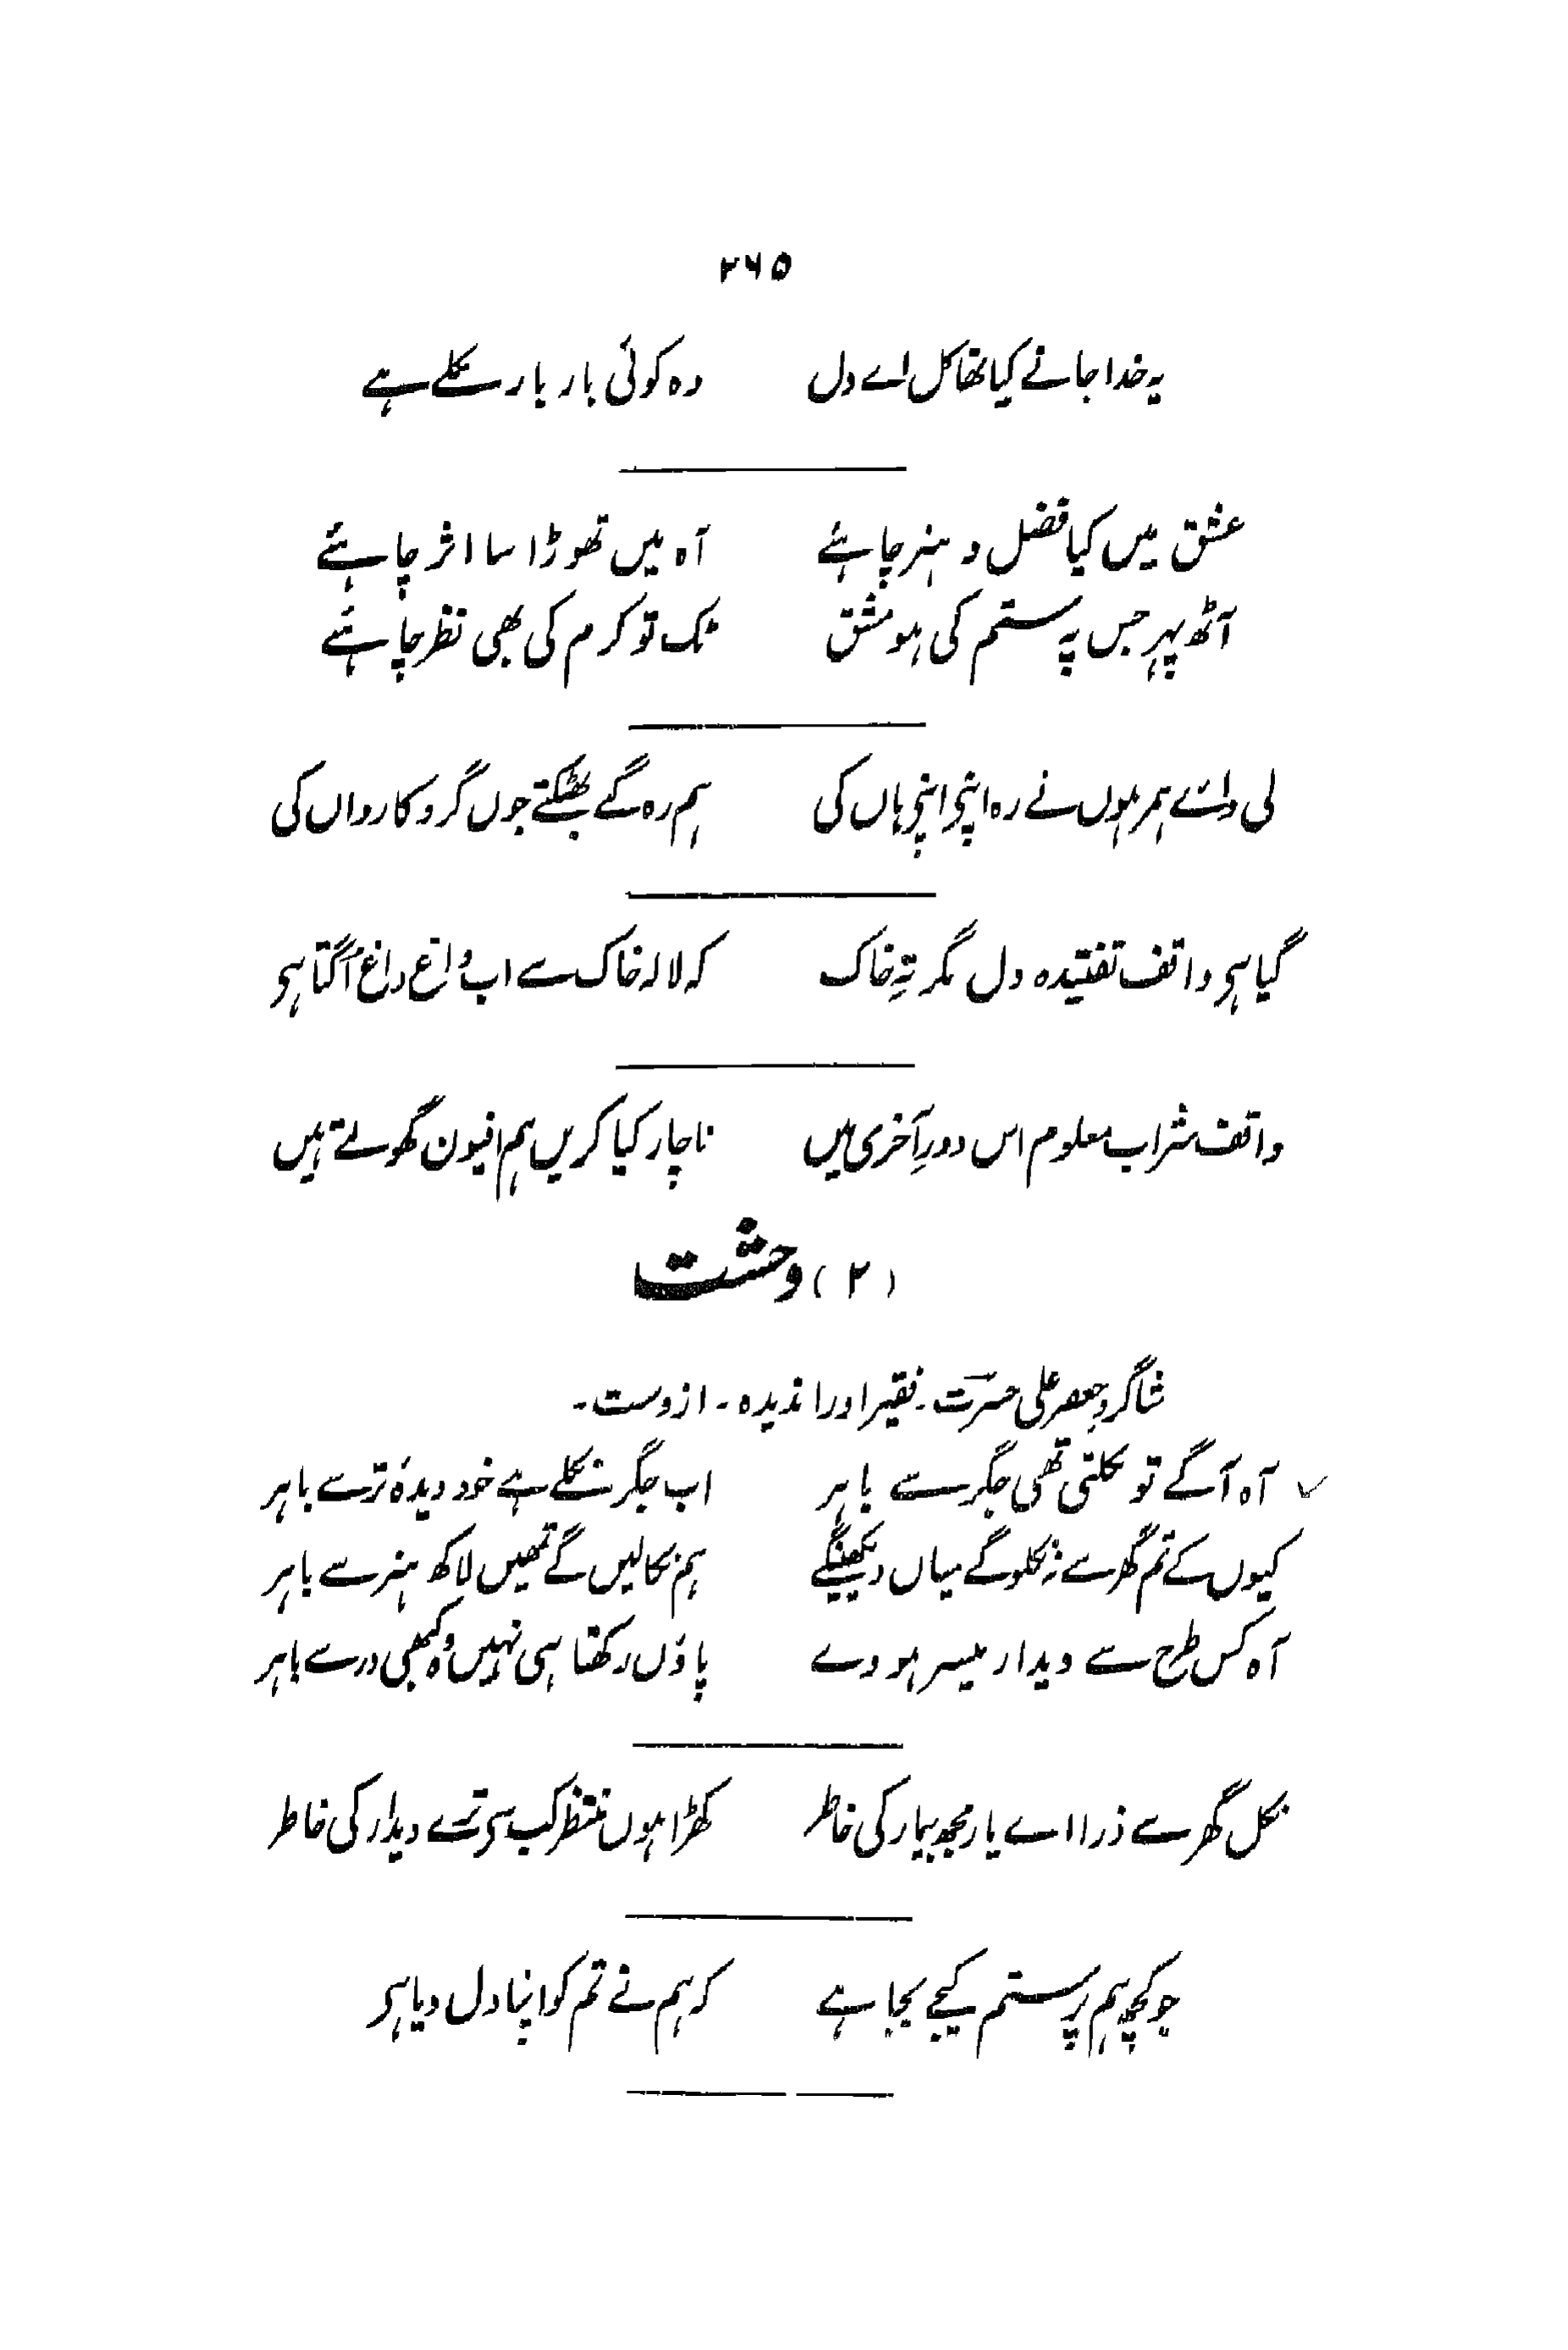 ۲۶۵
یہ خدا جانے کیا تھا کل اے دل وہ کوئی بار بار نکلے ہے
عشق میں کیا فضل و ہنر چاہئے آہ میں تھوڑا سا اثر چاہئے
آٹھ پہر جس پہ ستم کی ہو مشق ٹک تو کرم کی بھی نظر چاہئے
لی واے ہمرہوں نے رہ اپنی اپنی ہاں کی ہم رہ گے بھٹکتے جوں گرد کارواں کی
گیا ہی واقف تفتیدہ دل مگر تہِ خاک کہ لالہ خاک سے اب داغ داغ اگتا ہی
واقف شراب معلوم اس دورِ آخری میں ناچار کیا کریں ہم افیون گھولتے ہیں
(۲) وحشت
شاگردِ جعفر علی حسرت۔ فقیر اورا ندیدہ۔ ازوست۔
آہ آگے تو نکلتی تھی جگر سے باہر اب جگر نکلے ہے خود دیدۂ تر سے باہر
کیوں کے تم گھر سے نہ نکلوگے میاں دیکھینگے ہم نکالیں گے تمھیں لاکھ ہنر سے باہر
آہ کس طرح سے دیدار میسر ہووے پاؤں رکھتا ہی نہیں وہ کبھی در سے باہر
نکل گھر سے ذرا اے یار مجھ بیمار کی خاطر کھڑا ہوں منتظر کب سی ترے دیدار کی خاطر
جو کچھ ہم پر ستم کیجے بجا ہے کہ ہم نے تم کو اپنا دل دیا ہی